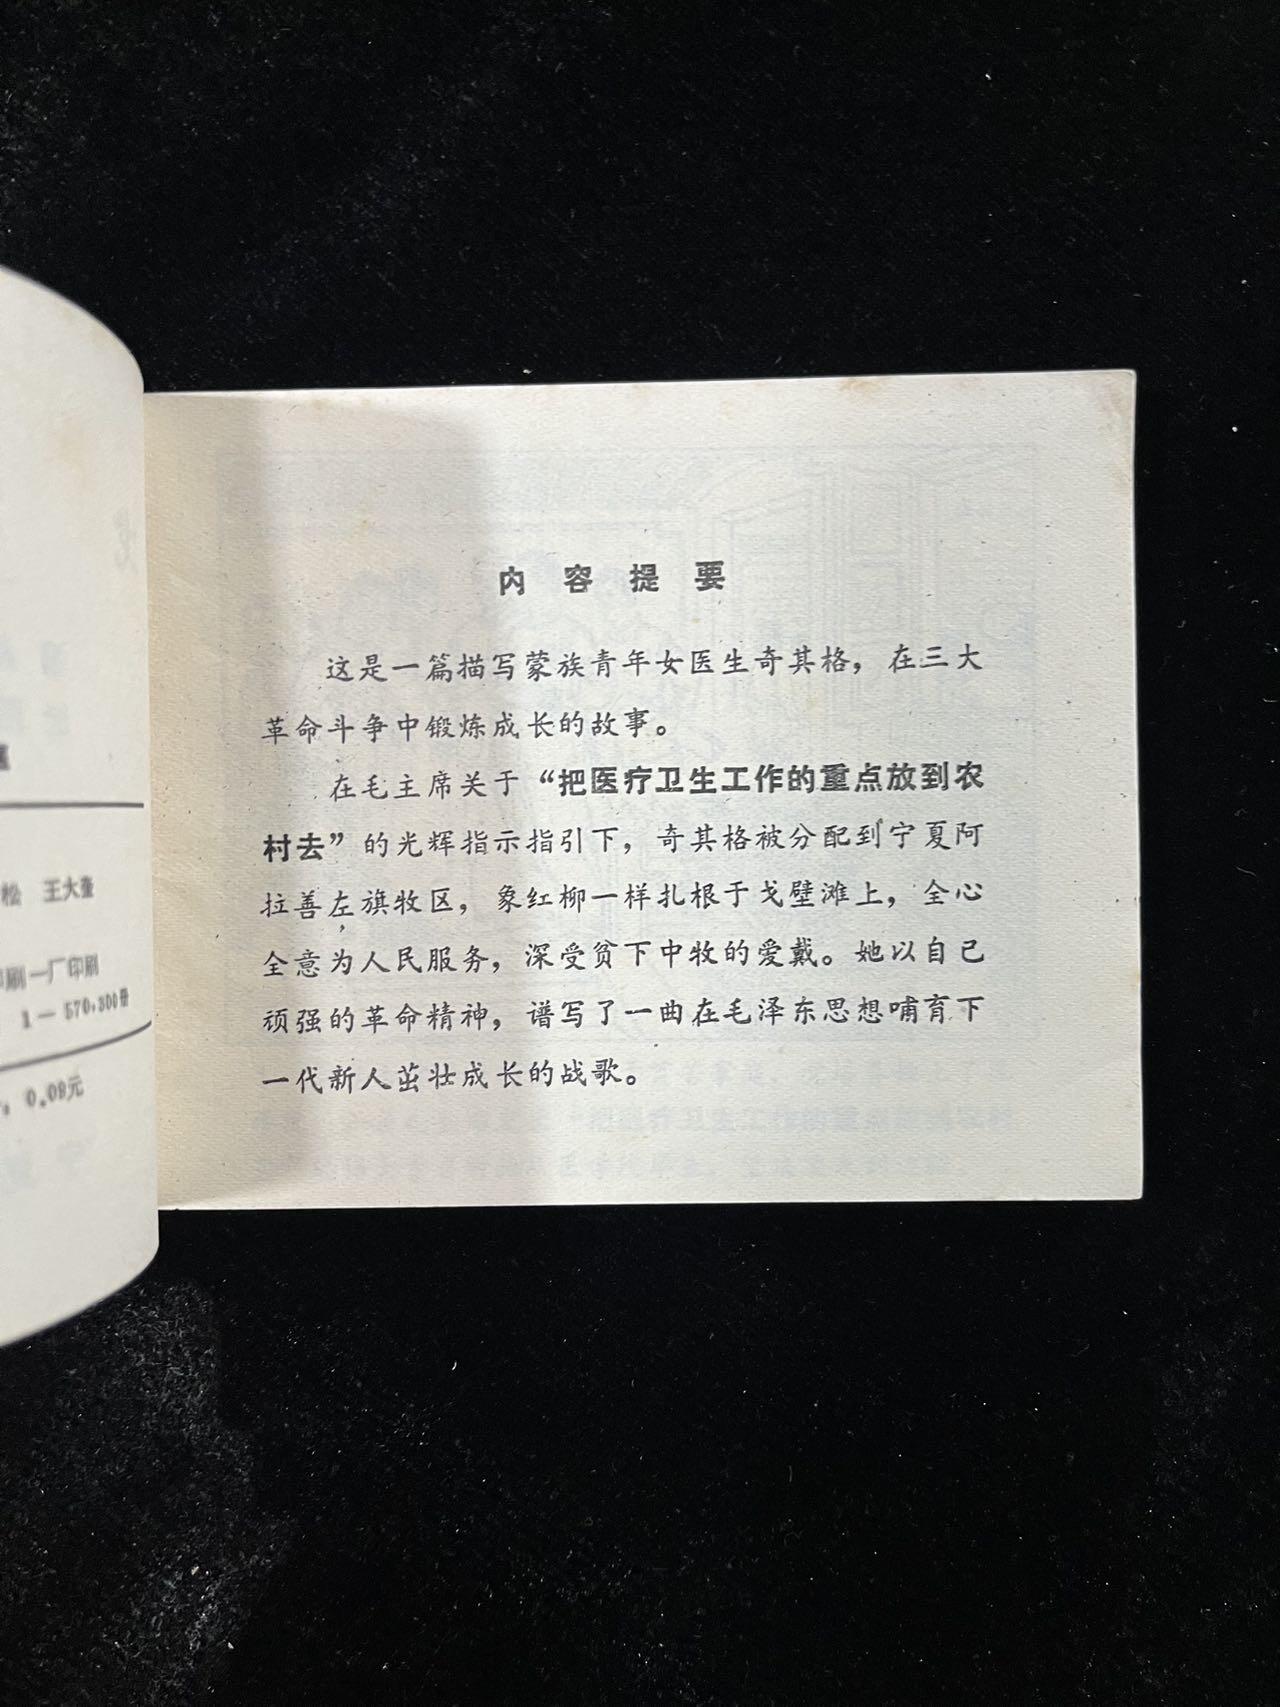 松 王大奎
印刷一厂印刷
1—570,300册
0.09元
内容提要
这是一篇描写蒙族青年女医生奇其格，在三大
革命斗争中锻炼成长的故事。
在毛主席关于“把医疗卫生工作的重点放到农
村去”的光辉指示指引下，奇其格被分配到宁夏阿
拉善左旗牧区，象红柳一样扎根于戈壁滩上，全心
全意为人民服务，深受贫下中牧的爱戴。她以自己
顽强的革命精神，谱写了一曲在毛泽东思想哺育下
一代新人茁壮成长的战歌。